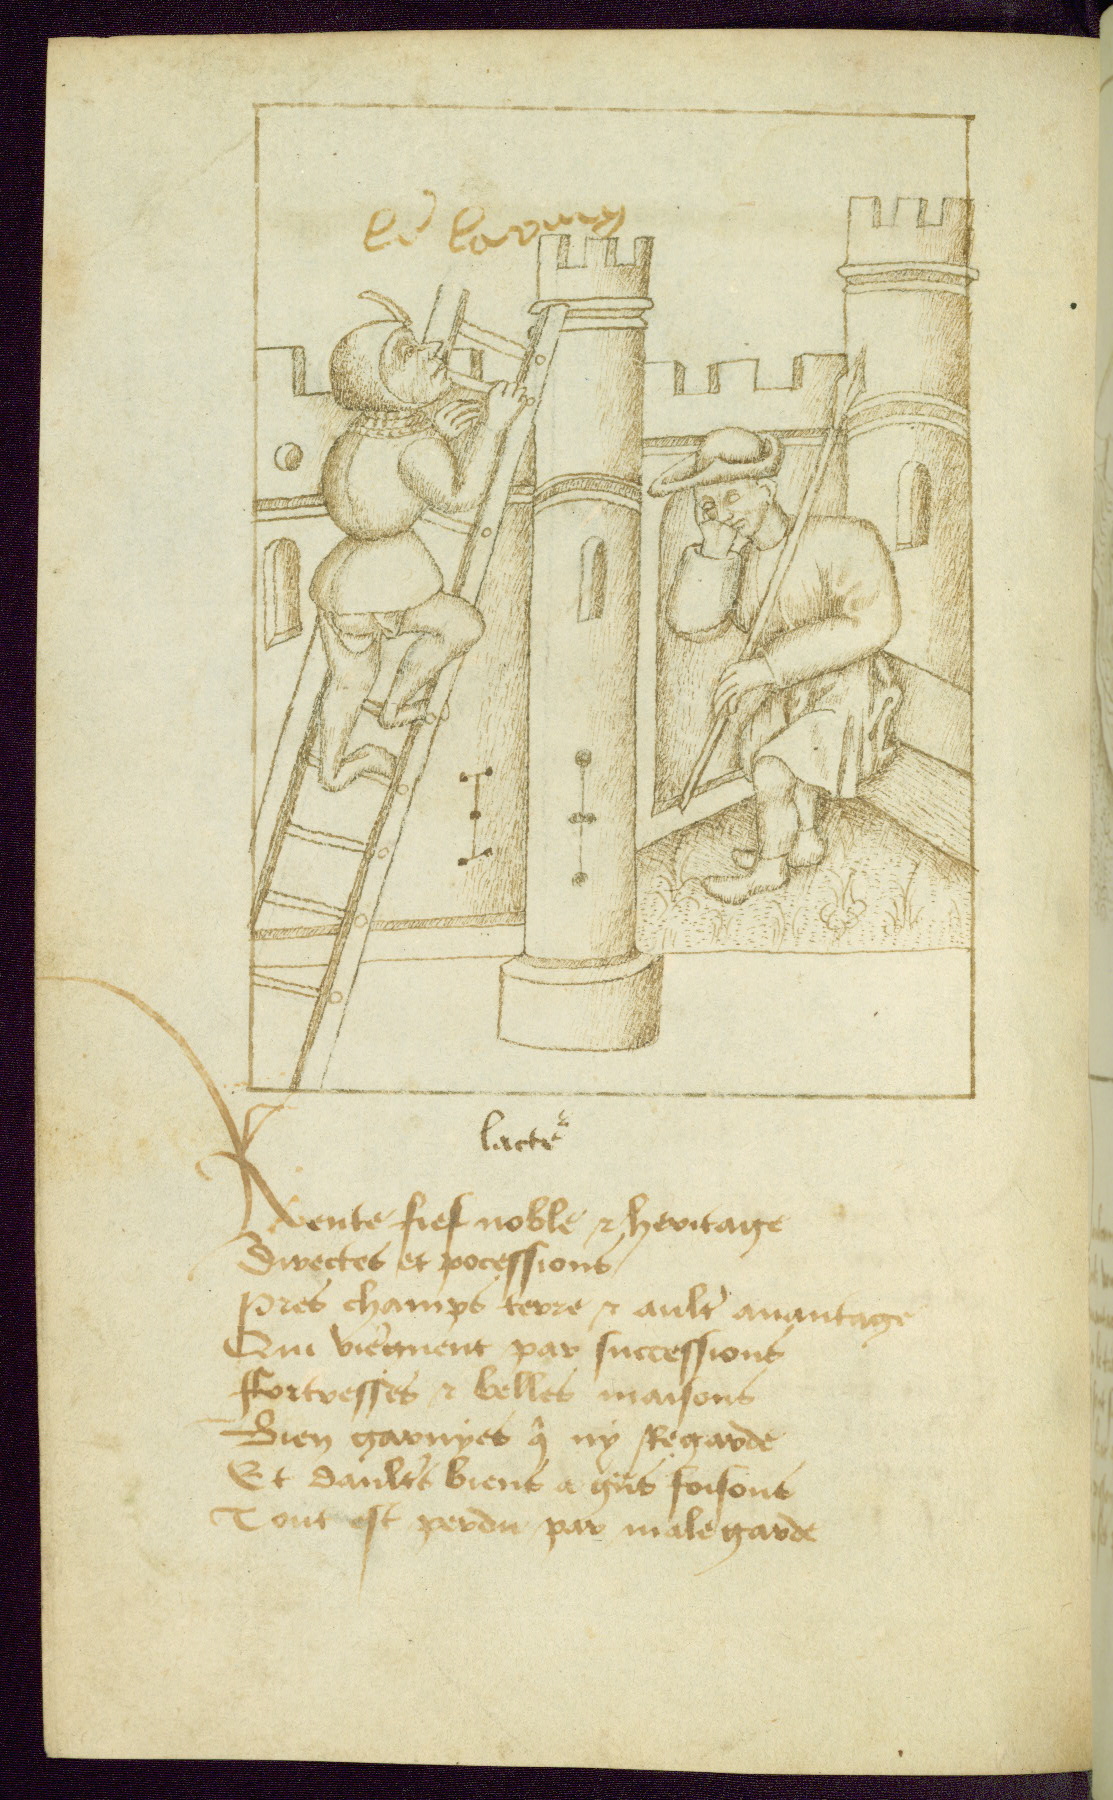 Rente fief noble ⁊ heritage
Directes et pocessions
Pres champs terre ⁊ ault' auantage
Qui viēgnent par successions
Fortresses ⁊ belles maisons
Bien garnyes q̄ ny Regarde
Et daultr̄s biens a grās foisons
Tout est perdu par male garde